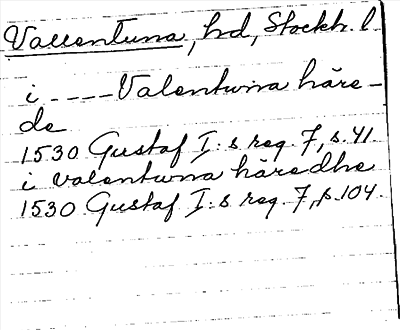 Vallentuna, hd, Stockh. l
i ---- Valentwna häre-
de
1530 Gustaf I:s reg. 7, s. 41
i valentwna häredhe
1530 Gustaf I:s reg. 7, s. 104